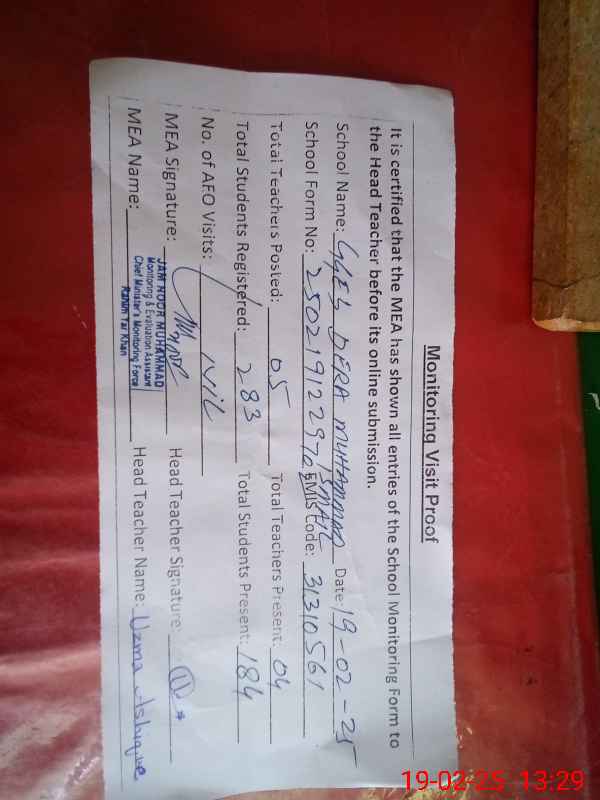 Monitoring Visit Proof
It is certified that the MEA has shown all entries of the School Monitoring Form to
the Head Teacher before its online submission.
School Name: GGES DERA MUHAMMAD Date: 19-02-25
ISMAIL
School Form No: 250219122970 EMIS Code: 31310561
Total Teachers Posted: 05 Total Teachers Present: 04
Total Students Registered: 283 Total Students Present: 184
No. of AEO Visits: Nil
MEA Signature: Head Teacher Signature:
MEA Name: JAM NOOR MUHAMMAD Head Teacher Name: Uzma Ashique
Monitoring & Evaluation Assistant
Chief Minister's Monitoring Force
Rahim Yar Khan
19-02-25 13:29